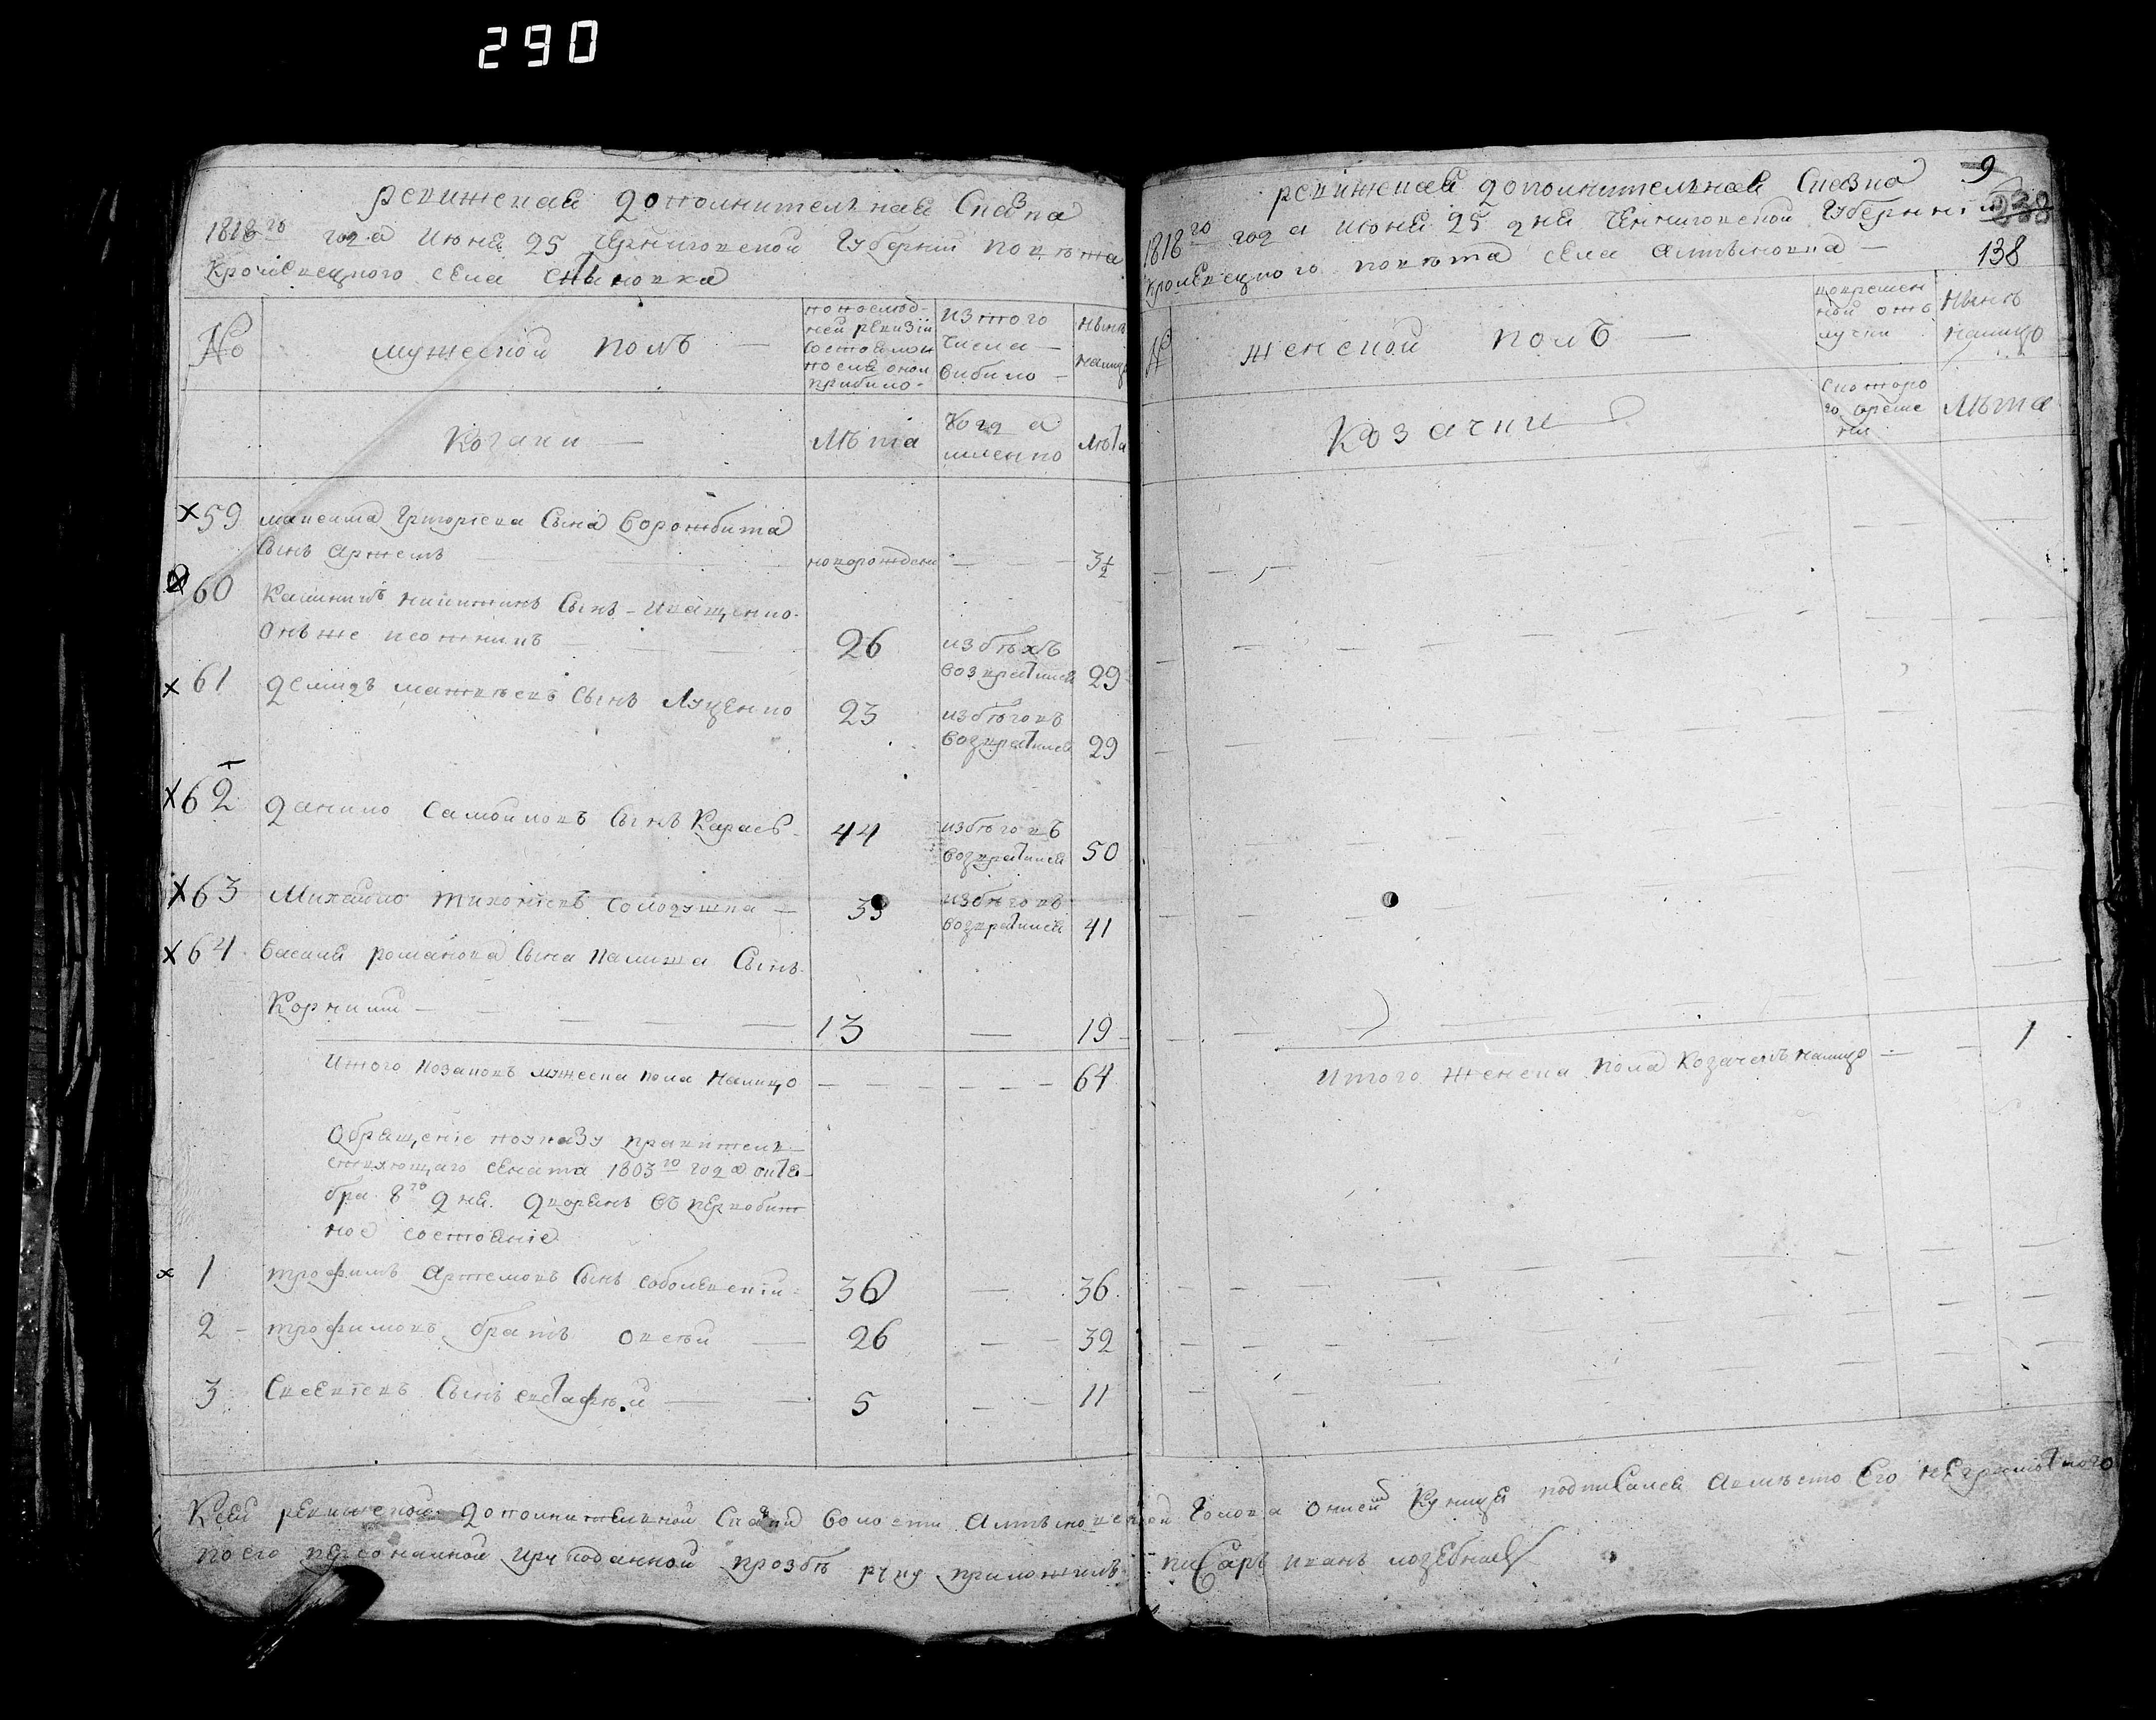 290
ревижская дополнителная Сказка
1818го года июня 25 Черниговской Губернии повѣта
Кролевецкого села
№
мужеской полъ —
по послѣд-
ней ревизіи
состояло и
после оной
прибило
изтого
числа —
вибило —
нынѣ
налицо
Козаки —
Лѣта
Когда
имѣнно
лѣта
59 максима Григориева Сына Ворожбита
Сынъ Артемъ новорожденъ — 3½
60 Сынъ Иващенко
Онъ же 26 избѣхъ
возвратился 29
61 Демидъ матвѣевъ Сынъ Луценко 23 избѣговъ
возвратился 29
62 Данило Самойловъ Сынъ Карась 44 избѣговъ
возвратился 50
63 Михайло тихоновъ Солодушка — избѣговъ
возвратился 41
64 Василя романова Сына Сынъ
Корнилй — 13 — 19
Итого козаковъ мужеска пола налицо — 64
Обращение по указу правител-
ствующаго Сената 1803го года октя-
бра 8го дня. Дворянъ въ первобит-
ное состояние
1 трофимъ Артемовъ Сынъ 30 — 36
2 — трофимовъ братъ — 26 — 32
3 Сынъ евстафѣй — 5 — 11
9
ревижская дополнителная Сказка
1818го года июня 25 дня Черниговской Губернии
138
кролевецкого повѣта села алтыновка —
№
женской полъ —
во времен
ной отъ
лучки
нынѣ
налицо
Козачки
Скоторо
го време
ни
Лѣта
Итого женска пола Козачекъ налицо — 1
Ксей ревижской дополнителной Сказки волости Алтыновской Голова Куница подписался авмѣсто Его неграмотного
по его персоналной прозбѣ руку приложилъ писаръ иванъ